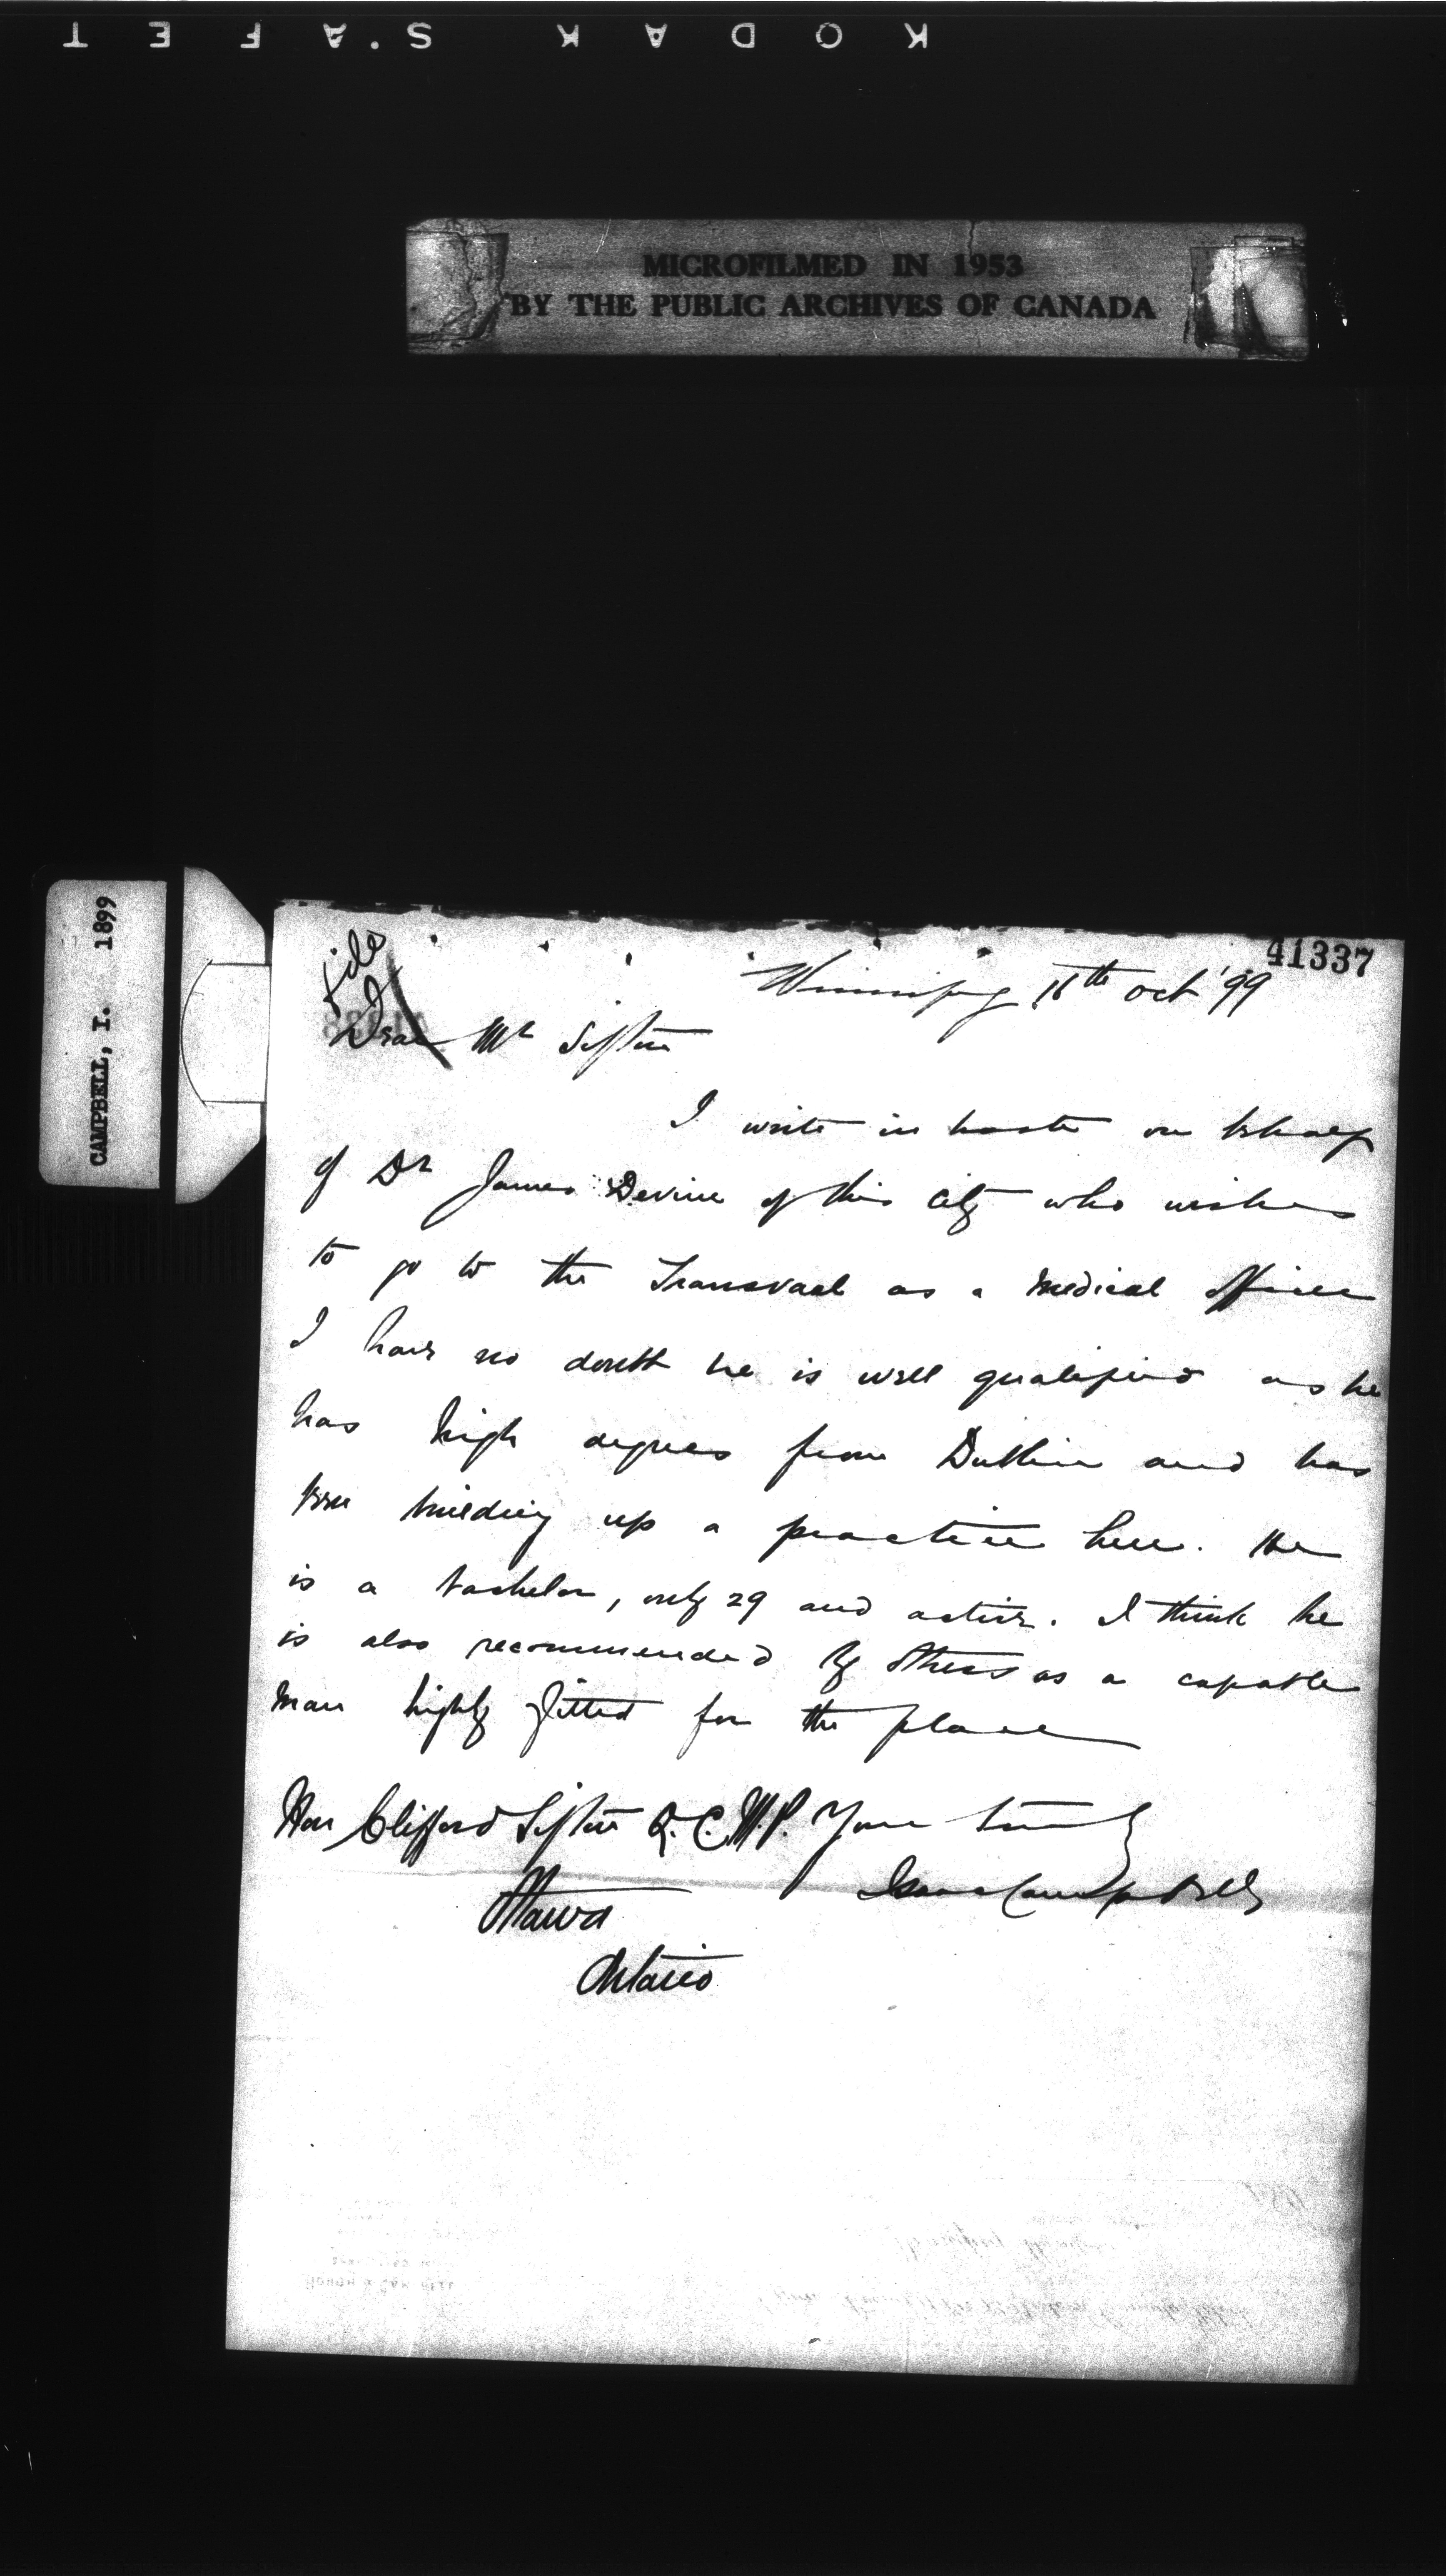 KODAK S'AFET
MICROFILMED IN 1953
BY THE PUBLIC ARCHIVES OF CANADA
CAMPBELL, I. 1899
41337
file
Winnipeg 16th Oct '99
Dear Mr Sifton
I write in haste on behalf
of Dr James Devine of this City who wishes
to go to the Transvaal as a medical officer
I have no doubt he is well qualified as he
has high degrees from Dublin and has
been building up a practice here. He
is a bachelor, only 29 and active. I think he
is also recommended by others as a capable
man highly fitted for the place
Yours truly
Isaac Campbell
Hon Clifford Sifton Q.C. M.P.
Ottawa
Ontario